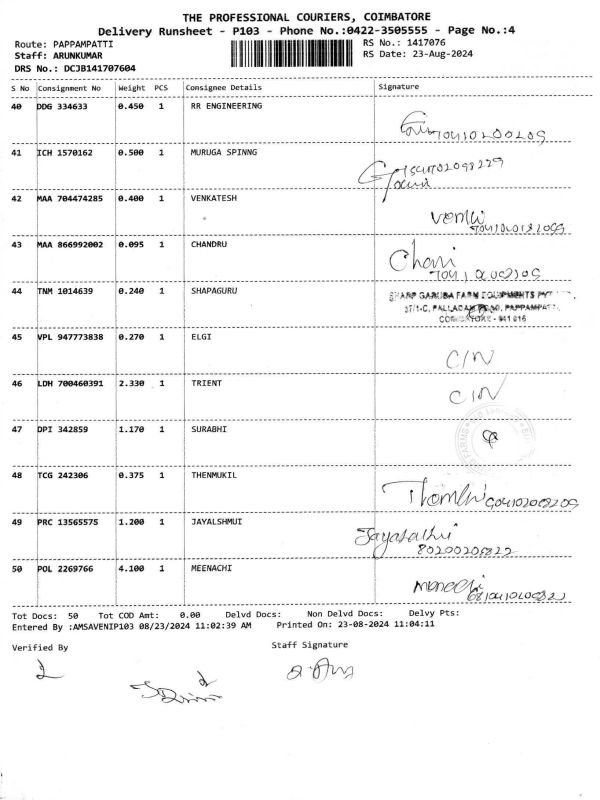 THE PROFESSIONAL COURIERS, COIMBATORE
Delivery Runsheet - P103 - Phone No.:0422-3505555 - Page No.:4
Route: PAPPAMPATTI RS No.: 1417076
Staff: ARUNKUMAR RS Date: 23-Aug-2024
DRS No.: DCJB141707604
S No Consignment No Weight PCS Consignee Details Signature
40 DDG 334633 0.450 1 RR ENGINEERING
41 ICH 1570162 0.500 1 MURUGA SPINNG
42 MAA 704474285 0.400 1 VENKATESH
43 MAA 866992002 0.095 1 CHANDRU
44 TNM 1014639 0.240 1 SHAPAGURU
SHARP GARUDA FARM EQUIPMENTS PVT
37/1-C, PALLADAM ROAD, PAPPAMPATTI,
COIMBATORE - 641 016
45 VPL 947773838 0.270 1 ELGI
C/N
46 LDH 700460391 2.330 1 TRIENT
C/N
47 DPI 342859 1.170 1 SURABHI
48 TCG 242306 0.375 1 THENMUKIL
49 PRC 13565575 1.200 1 JAYALSHMUI
50 POL 2269766 4.100 1 MEENACHI
Tot Docs: 50 Tot COD Amt: 0.00 Delvd Docs: Non Delvd Docs: Delvy Pts:
Entered By :AMSAVENIP103 08/23/2024 11:02:39 AM Printed On: 23-08-2024 11:04:11
Verified By Staff Signature